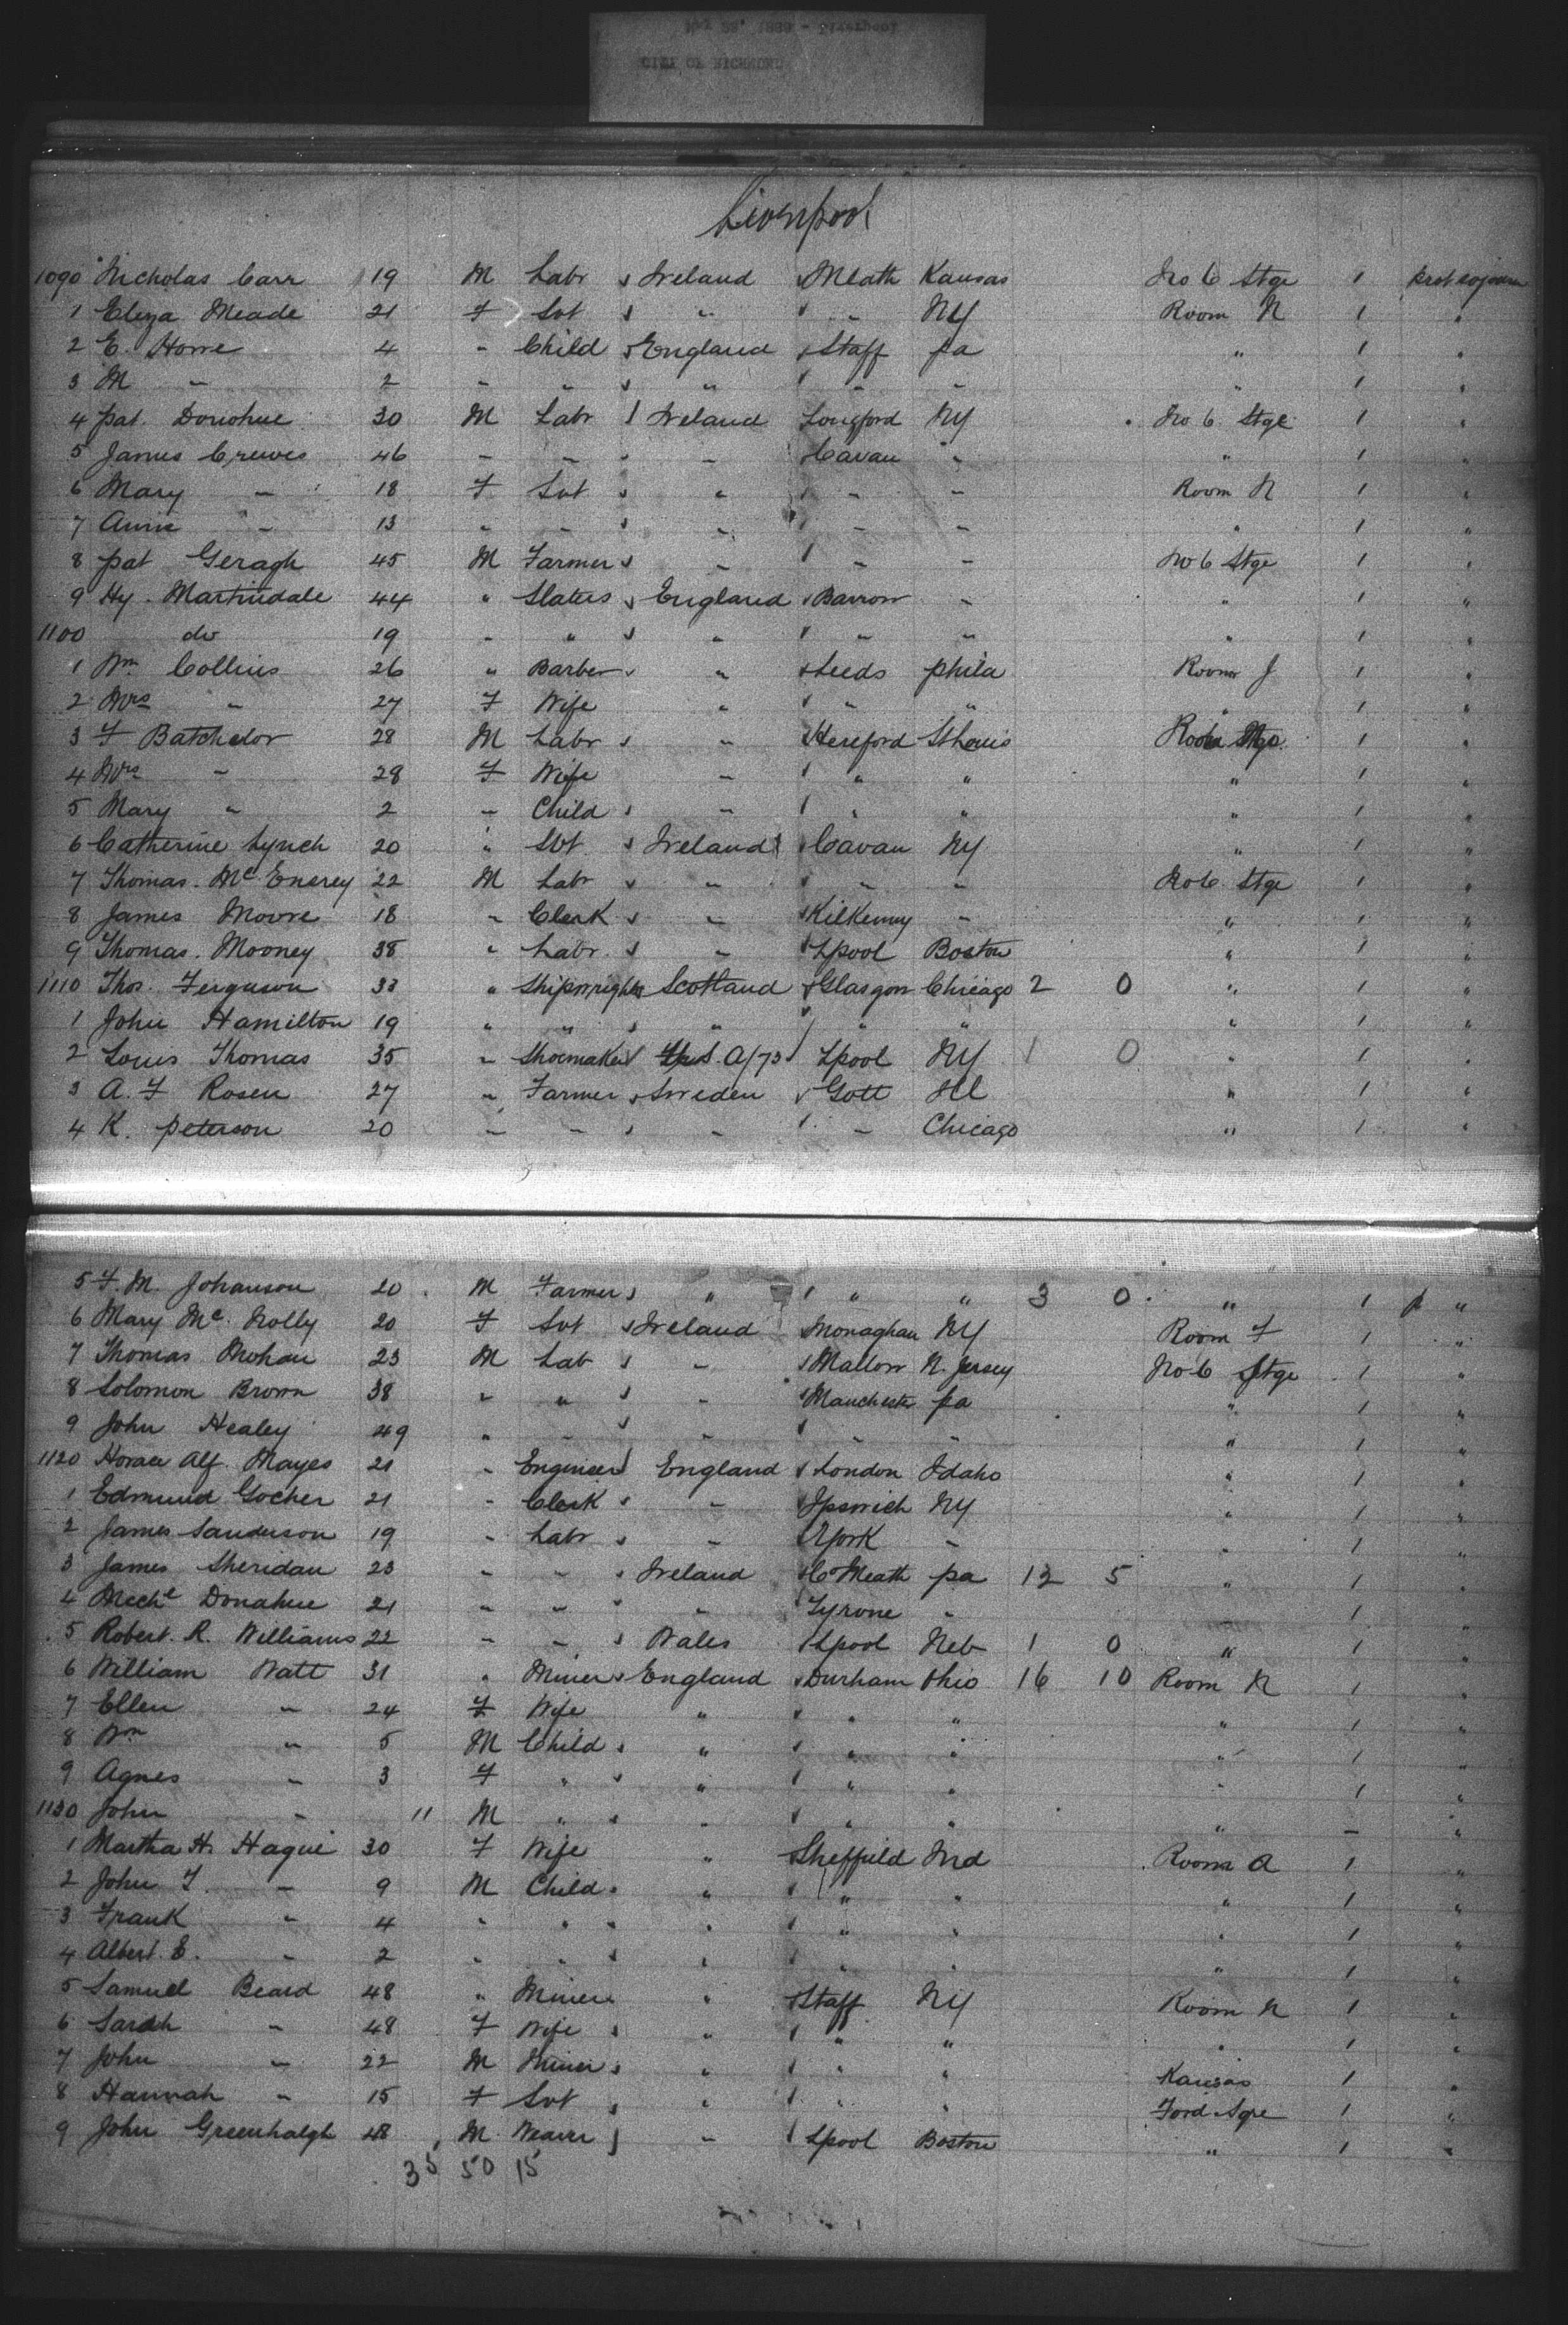 CITY OF RICHMOND
Liverpool
1090 Nicholas Carr 19 M Labr Ireland Meath Kansas No 6 Stge 1 prot sojourn
1 Eliza Meade 21 F Svt " " NY Room N 1 "
2 E. Horne 4 " Child England Staff pa " 1 "
3 M " 2 " " " " " " 1 "
4 pat. Donohue 30 M Labr Ireland Longford NY No 6 Stge 1 "
5 James Crewes 46 " " " Cavan " " 1 "
6 Mary " 18 F Svt " " " Room N 1 "
7 Annie " 13 " " " " " " 1 "
8 pat Geragh 45 M Farmer " " " No 6 Stge 1 "
9 Hy. Martindale 44 " Slaters England Barrow " " 1 "
1100 do 19 " " " " " " 1 "
1 Wm Collins 26 " Barber " Leeds phila Room J 1 "
2 Mrs " 27 F Wife " " " " 1 "
3 F Batchelor 28 M Labr " Hereford St Louis 1 "
4 Mrs " 28 F Wife " " " " 1 "
5 Mary " 2 " Child " " " " 1 "
6 Catherine Lynch 20 " Svt Ireland Cavan NY " 1 "
7 Thomas. McEnerey 22 M Labr " " " No 6 Stge 1 "
8 James Moore 18 " Clerk " Kilkenny " " 1 "
9 Thomas. Mooney 38 " Labr " Lpool Boston " 1 "
1110 Thos. Ferguson 33 " Shipwright Scotland Glasgow Chicago 2 0 " 1 "
1 John Hamilton 19 " " " " " " 1 "
2 Louis Thomas 35 " Shoemaker U.S.A/73 Lpool NY 1 0 " 1 "
3 A. F Rosen 27 " Farmer Sweden Gott Ill " 1 "
4 K. peterson 20 " " " " Chicago " 1 "
5 F. M. Johanson 20 M Farmer " " " 3 0 " 1 p "
6 Mary Mc. Nolly 20 F Svt Ireland Monaghan NY Room F 1 "
7 Thomas Mohan 23 M Lab " Mallow N. Jersey No 6 Stge 1 "
8 Solomon Brown 38 " " " Manchester pa " 1 "
9 John Healey 49 " " " " " " 1 "
1120 Horace Alf. Mayes 21 " Engineer England London Idaho " 1 "
1 Edmund Gocher 21 " Clerk " Ipswich NY " 1 "
2 James Sanderson 19 " Labr " York " " 1 "
3 James Sheridan 23 " " Ireland Co Meath pa 12 5 " 1 "
4 Mechl Donahue 21 " " " Tyrone " " 1 "
5 Robert. R. Williams 22 " " Wales Lpool Neb 1 0 " 1 "
6 William Watt 31 " Miner England Durham Ohio 16 10 Room N 1 "
7 Ellen " 24 F Wife " " " " 1 "
8 Wm " 5 M Child " " " " 1 "
9 Agnes " 3 F " " " " " 1 "
1130 John " 11 M " " " " " - "
1 Martha H. Hague 30 F Wife " Sheffield Ind Room A 1 "
2 John T. " 9 M Child " " " " 1 "
3 Frank " 4 " " " " " " 1 "
4 Albert. E. " 2 " " " " " " 1 "
5 Samuel Beard 48 " Miner " Staff NY Room N 1 "
6 Sarah " 48 F Wife " " " " 1 "
7 John " 22 M Miner " " " Kansas 1 "
8 Hannah " 15 F Svt " " " Ford Sqre 1 "
9 John Greenhalgh 48 M Weaver " Lpool Boston " 1 "
35 50 15